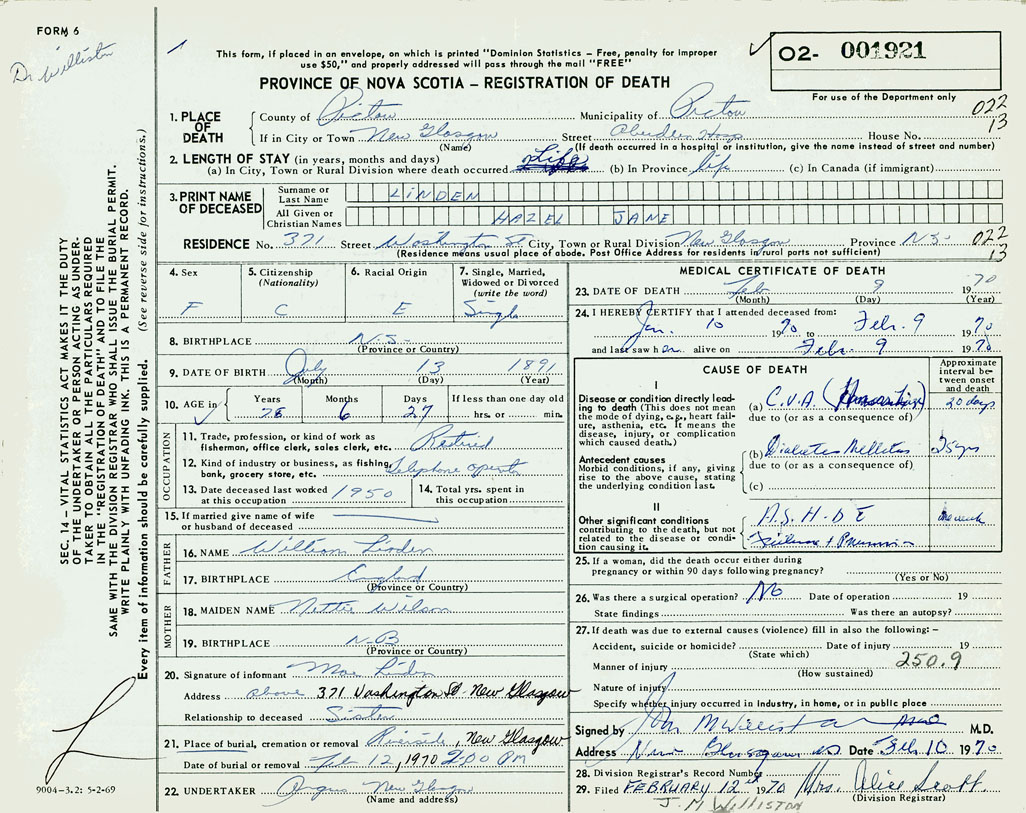 FORM 6
Dr Williston
This form, if placed in an envelope, on which is printed "Dominion Statistics – Free, penalty for improper
use $50," and properly addressed will pass through the mail "FREE"
PROVINCE OF NOVA SCOTIA – REGISTRATION OF DEATH
O2- 001921
For use of the Department only
022
13
1. PLACE OF DEATH
County of Pictou Municipality of Pictou
If in City or Town New Glasgow Street Aberdeen Hosp House No.
(Name) (If death occurred in a hospital or institution, give the name instead of street and number)
2. LENGTH OF STAY (in years, months and days)
(a) In City, Town or Rural Division where death occurred Life (b) In Province life (c) In Canada (if immigrant)
3. PRINT NAME OF DECEASED
Surname or Last Name LINDEN
All Given or Christian Names HAZEL JANE
RESIDENCE No. 371 Street Washington St City, Town or Rural Division New Glasgow Province N.S.
(Residence means usual place of abode. Post Office Address for residents in rural parts not sufficient)
022
13
4. Sex F
5. Citizenship (Nationality) C
6. Racial Origin E
7. Single, Married, Widowed or Divorced (write the word) Single
8. BIRTHPLACE N.S.
(Province or Country)
9. DATE OF BIRTH July 13 1891
(Month) (Day) (Year)
10. AGE in Years 78 Months 6 Days 27 If less than one day old hrs. or min.
OCCUPATION
11. Trade, profession, or kind of work as fisherman, office clerk, sales clerk, etc. Retired
12. Kind of industry or business, as fishing, bank, grocery store, etc. Telephone operator
13. Date deceased last worked at this occupation 1950
14. Total yrs. spent in this occupation
15. If married give name of wife or husband of deceased
FATHER
16. NAME William Linden
17. BIRTHPLACE England
(Province or Country)
MOTHER
18. MAIDEN NAME Nettie Wilson
19. BIRTHPLACE N-B
(Province or Country)
20. Signature of informant Linden
Address above 371 Washington St New Glasgow
Relationship to deceased Sister
21. Place of burial, cremation or removal Riverside, New Glasgow
Date of burial or removal Feb 12, 1970 2:00 PM
22. UNDERTAKER Angus New Glasgow
(Name and address)
MEDICAL CERTIFICATE OF DEATH
23. DATE OF DEATH Feb 9 1970
(Month) (Day) (Year)
24. I HEREBY CERTIFY that I attended deceased from:
Jan. 10 1970 to Feb. 9 1970
and last saw her alive on Feb. 9 1970
CAUSE OF DEATH
Approximate interval between onset and death
I
Disease or condition directly leading to death (This does not mean the mode of dying, e.g., heart failure, asthenia, etc. It means the disease, injury, or complication which caused death.)
(a) C.V.A. (Hemorrhage) 20 days
due to (or as a consequence of)
Antecedent causes
Morbid conditions, if any, giving rise to the above cause, stating the underlying condition last.
(b) Diabetes Mellitus 25 yrs
due to (or as a consequence of)
(c)
II
Other significant conditions contributing to the death, but not related to the disease or condition causing it.
A.S.H.D E one week
Failure + Pneumonia
25. If a woman, did the death occur either during pregnancy or within 90 days following pregnancy?
(Yes or No)
26. Was there a surgical operation? No Date of operation 19
State findings Was there an autopsy?
27. If death was due to external causes (violence) fill in also the following: –
Accident, suicide or homicide? Date of injury 19
(State which)
250.9
Manner of injury
(How sustained)
Nature of injury
Specify whether injury occurred in industry, in home, or in public place
Signed by J M Williston M.D.
Address New Glasgow N.S. Date Feb 10 1970
28. Division Registrar's Record Number
29. Filed FEBRUARY 12th 1970 Mrs. Alice Scott
(Division Registrar)
J. M WILLISTON
SEC. 14 – VITAL STATISTICS ACT MAKES IT THE DUTY
OF THE UNDERTAKER OR PERSON ACTING AS UNDER-
TAKER TO OBTAIN ALL THE PARTICULARS REQUIRED
IN THE "REGISTRATION OF DEATH" AND TO FILE THE
SAME WITH THE DIVISION REGISTRAR WHO SHALL ISSUE THE BURIAL PERMIT.
WRITE PLAINLY WITH UNFADING INK. THIS IS A PERMANENT RECORD.
Every item of information should be carefully supplied. (See reverse side for instructions.)
9004-3.2: 5-2-69